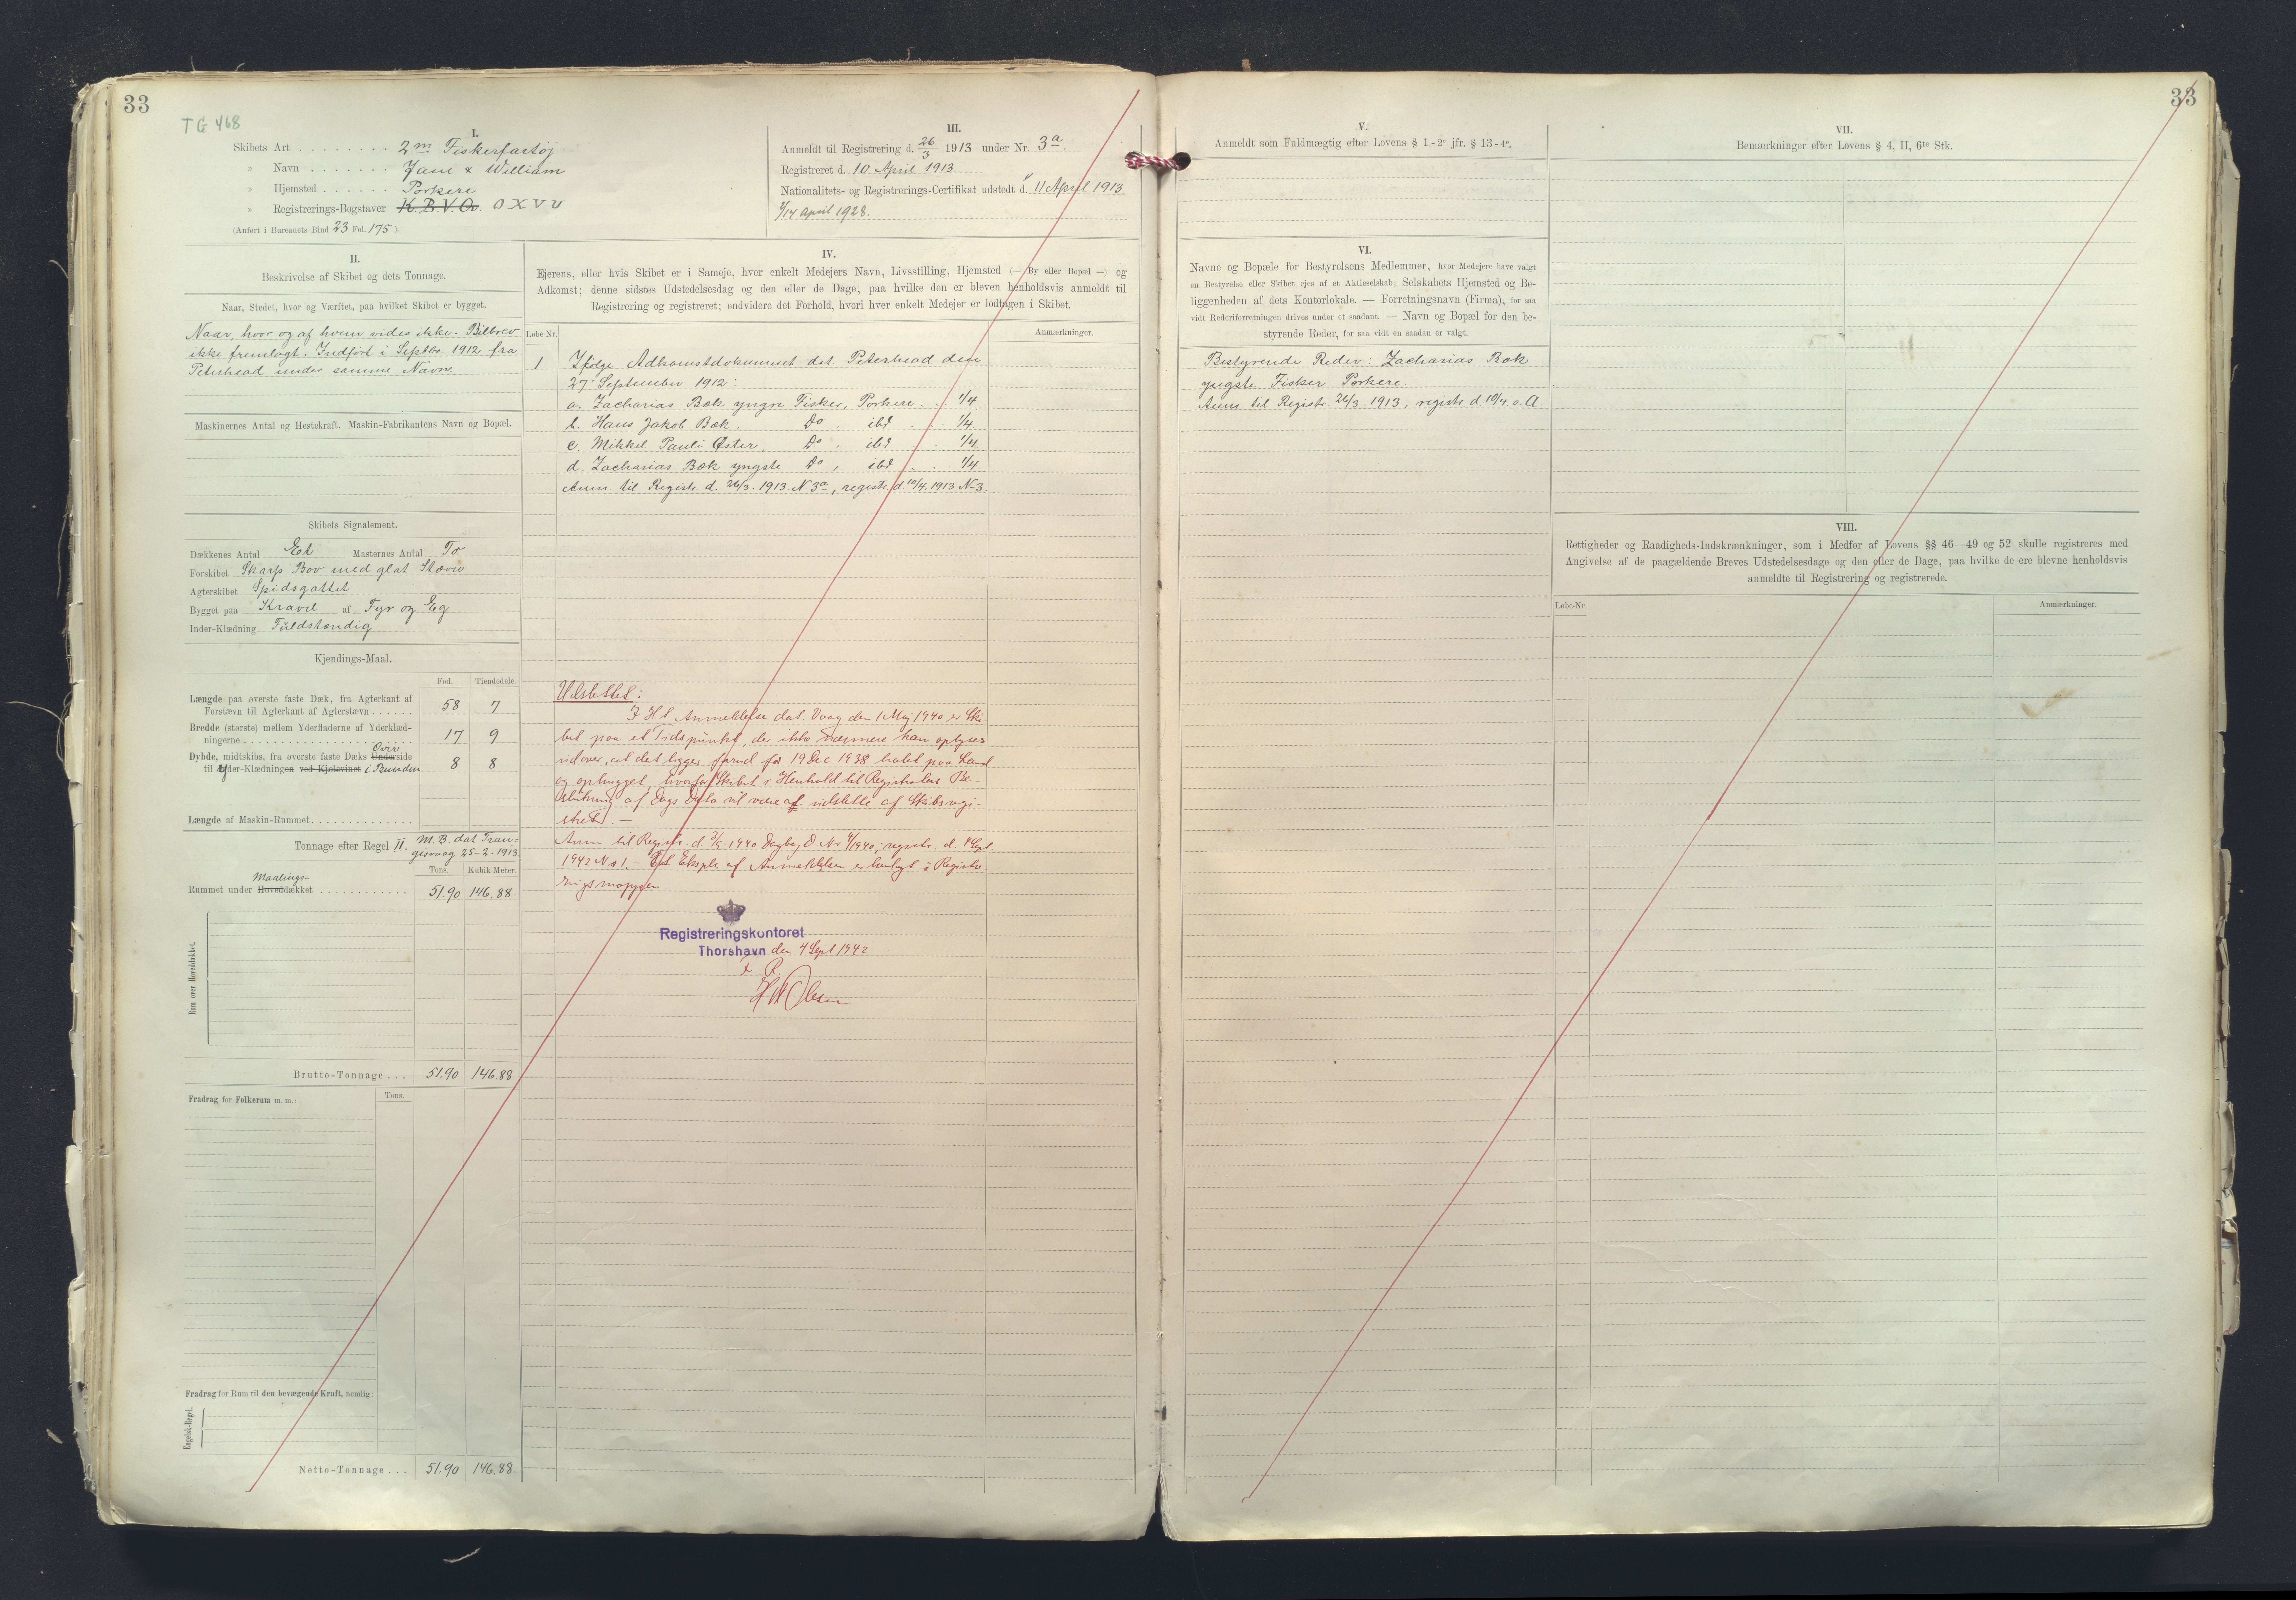 33
TG 468
I.
Skibets Art . . . . . . . . 2m Fiskerfartøj
» Navn . . . . . . . Jane & William
» Hjemsted . . . . . . Porkere
» Registrerings-Bogstaver K.B.V.Q. OXVU
(Anført i Bureauets Bind 23 Fol. 175).
III.
Anmeldt til Registrering d. 26/3 1913 under Nr. 3a.
Registreret d. 10 April 1913
Nationalitets- og Registrerings-Certifikat udstedt d. 11 April 1913
14 april 1928.
II.
Beskrivelse af Skibet og dets Tonnage.
Naar, Stedet, hvor og Værftet, paa hvilket Skibet er bygget.
Naar, hvor og af hvem vides ikke. Bilbrev
ikke fremlagt. Indført i Septbr. 1912 fra
Peterhead under samme Navn.
Maskinernes Antal og Hestekraft. Maskin-Fabrikantens Navn og Bopæl.
Skibets Signalement.
Dækkenes Antal Et Masternes Antal To
Forskibet Skarp Bov med glat Stævn
Agterskibet Spidsgattet
Bygget paa Kravel af Fyr og Eg
Inder-Klædning Fuldstændig
Kjendings-Maal.
Fod. Tiendedele.
Længde paa øverste faste Dæk, fra Agterkant af
Forstævn til Agterkant af Agterstævn . . . . . . 58 7
Bredde (største) mellem Yderfladerne af Yderklæd-
ningerne . . . . . . . . . . . . . . . . . 17 9
Dybde, midtskibs, fra øverste faste Dæks Underside Over
til Yder-Klædningen ved Kjølsvinet i Bunden 8 8
Længde af Maskin-Rummet . . . . . . . . . . . .
Tonnage efter Regel II. M.B. dat Tran-
gisvaag 25-2-1913
Tons. Kubik-Meter.
Maalings-
Rummet under Hoveddækket . . . . . . . . . . . 51.90 146.88
Rum over Hoveddækket.
Brutto-Tonnage . . . 51.90 146.88
Fradrag for Folkerum m. m.: Tons.
Fradrag for Rum til den bevægende Kraft, nemlig:
Engelsk-Regel.
Netto-Tonnage . . . 51.90 146.88.
IV.
Ejerens, eller hvis Skibet er i Sameje, hver enkelt Medejers Navn, Livsstilling, Hjemsted (— By eller Bopæl —) og
Adkomst; denne sidstes Udstedelsesdag og den eller de Dage, paa hvilke den er bleven henholdsvis anmeldt til
Registrering og registreret; endvidere det Forhold, hvori hver enkelt Medejer er lodtagen i Skibet.
Løbe-Nr. Anmærkninger.
1 Ifølge Adkomstdokument dat. Peterhead den
27' September 1912:
a. Zacharias Bæk yngre Fisker, Porkere . . 1/4
b. Hans Jakob Bæk. Do . ibd . . . 1/4
c. Mikkel Pauli Øster. Do . ibd . . 1/4
d. Zacharias Bæk yngste Do , ibd . . . 1/4
Anm. til Registr. d. 26/3. 1913 N. 3a, registr. d. 10/4. 1913 N. 3.
Udslettet:
I H t Anmeldelse dat. Vaag den 1 Maj 1940 er Ski-
bet paa et Tidspunkt, der ikke nærmere kan oplyses
udover, at det ligger forud for 19 Dec 1938 halet paa Land
og ophugget, hvorfor Skibet i Henhold til Registralens Be-
slutning af Dags Dato vil være at udslette af Skibsregi-
stret. —
Anm til Registr. d. 3/5-1940 Dagbog D Nr 4/1940, registr. d. 4 Sept.
1942 No 1. — Et Ekspl. af Anmeldelsen er henlagt i Registre-
ringsmappen
Registreringskontoret
Thorshavn den 4 Sept 1942
Olsen
33
V.
Anmeldt som Fuldmægtig efter Lovens § 1.-2° jfr. § 13-4°.
VI.
Navne og Bopæle for Bestyrelsens Medlemmer, hvor Medejere have valgt
en Bestyrelse eller Skibet ejes af et Aktieselskab; Selskabets Hjemsted og Be-
liggenheden af dets Kontorlokale. — Forretningsnavn (Firma), for saa
vidt Rederiforretningen drives under et saadant. — Navn og Bopæl for den be-
styrende Reder, for saa vidt en saadan er valgt.
Bestyrende Reder: Zacharias Bæk
yngste Fisker Porkere.
Anm. til Registr. 26/3. 1913, registr. d 10/4 s. A.
VII.
Bemærkninger efter Lovens § 4, II, 6te Stk.
VIII.
Rettigheder og Raadigheds-Indskrænkninger, som i Medfør af Lovens §§ 46—49 og 52 skulle registreres med
Angivelse af de paagældende Breves Udstedelsesdage og den eller de Dage, paa hvilke de ere blevne henholdsvis
anmeldte til Registrering og registrerede.
Løbe-Nr. Anmærkninger.